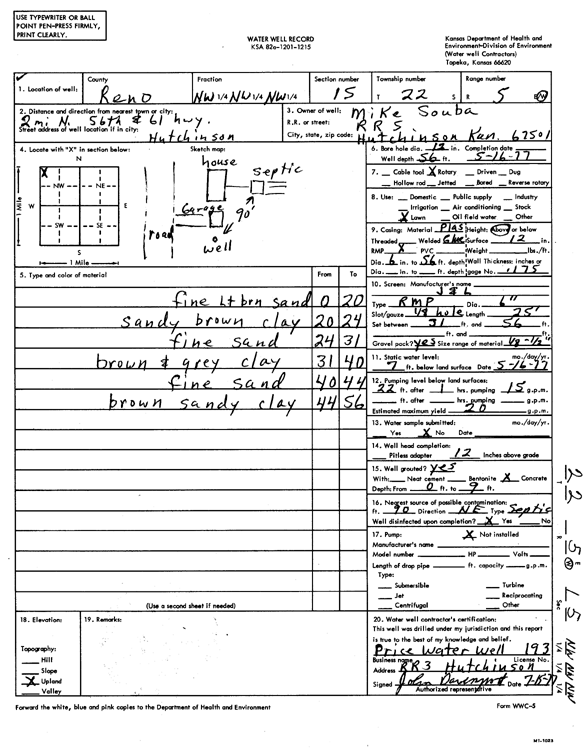 USE TYPEWRITER OR BALL
POINT PEN-PRESS FIRMLY,
PRINT CLEARLY.
WATER WELL RECORD
KSA 82a-1201-1215
Kansas Department of Health and
Environment-Division of Environment
(Water well Contractors)
Topeka, Kansas 66620
1. Location of well: County Reno Fraction NW 1/4 NW 1/4 NW 1/4 Section number 15 Township number T 22 S Range number R 5 E/W
2. Distance and direction from nearest town or city: 2 mi N. 56th & 61 hwy.
Street address of well location if in city: Hutchinson
3. Owner of well: Mike Souba
R.R. or street: RR5
City, state, zip code: Hutchinson Kan. 67501
4. Locate with "X" in section below:
N
X
NW NE
W E
SW SE
S
1 Mile
1 Mile
Sketch map:
house
septic
Garage
90'
road
well
5. Type and color of material From To
fine Lt brn sand 0 20
sandy brown clay 20 24
fine sand 24 31
brown & grey clay 31 40
fine sand 40 44
brown sandy clay 44 56
(Use a second sheet if needed)
6. Bore hole dia. 12 in. Completion date
Well depth 56 ft. 5-16-77
7. Cable tool X Rotary Driven Dug
Hollow rod Jetted Bored Reverse rotary
8. Use: Domestic Public supply Industry
Irrigation Air conditioning Stock
X Lawn Oil field water Other
9. Casing: Material PLAS Height: Above or below
Threaded Welded Glue Surface 12 in.
RMP X PVC Weight lbs./ft.
Dia. 6 in. to 56 ft. depth Wall Thickness: inches or
Dia. in. to ft. depth gage No. .175
10. Screen: Manufacturer's name
J & L
Type RMP Dia. 6"
Slot/gauze 1/8 hole Length 25'
Set between 31 ft. and 56 ft.
ft. and ft.
Gravel pack? yes Size range of material 1/8-1/2"
11. Static water level: mo./day/yr.
7 ft. below land surface Date 5-16-77
12. Pumping level below land surfaces:
22 ft. after 1 hrs. pumping 15 g.p.m.
ft. after hrs. pumping g.p.m.
Estimated maximum yield 20 g.p.m.
13. Water sample submitted: mo./day/yr.
Yes X No Date
14. Well head completion:
Pitless adapter 12 Inches above grade
15. Well grouted? yes
With: Neat cement Bentonite X Concrete
Depth: From 0 ft. to 9 ft.
16. Nearest source of possible contamination:
ft. 90 Direction NE Type Septic
Well disinfected upon completion? X Yes No
17. Pump: X Not installed
Manufacturer's name
Model number HP Volts
Length of drop pipe ft. capacity g.p.m.
Type:
Submersible Turbine
Jet Reciprocating
Centrifugal Other
18. Elevation:
Topography:
Hill
Slope
X Upland
Valley
19. Remarks:
20. Water well contractor's certification:
This well was drilled under my jurisdiction and this report
is true to the best of my knowledge and belief.
Price Water Well 193
Business name License No.
Address RR3 Hutchinson
Signed John Davenport Date
Authorized representative
Forward the white, blue and pink copies to the Department of Health and Environment
Form WWC-5
22 5 W 15 Sec NW NW NW 1/4 1/4 1/4